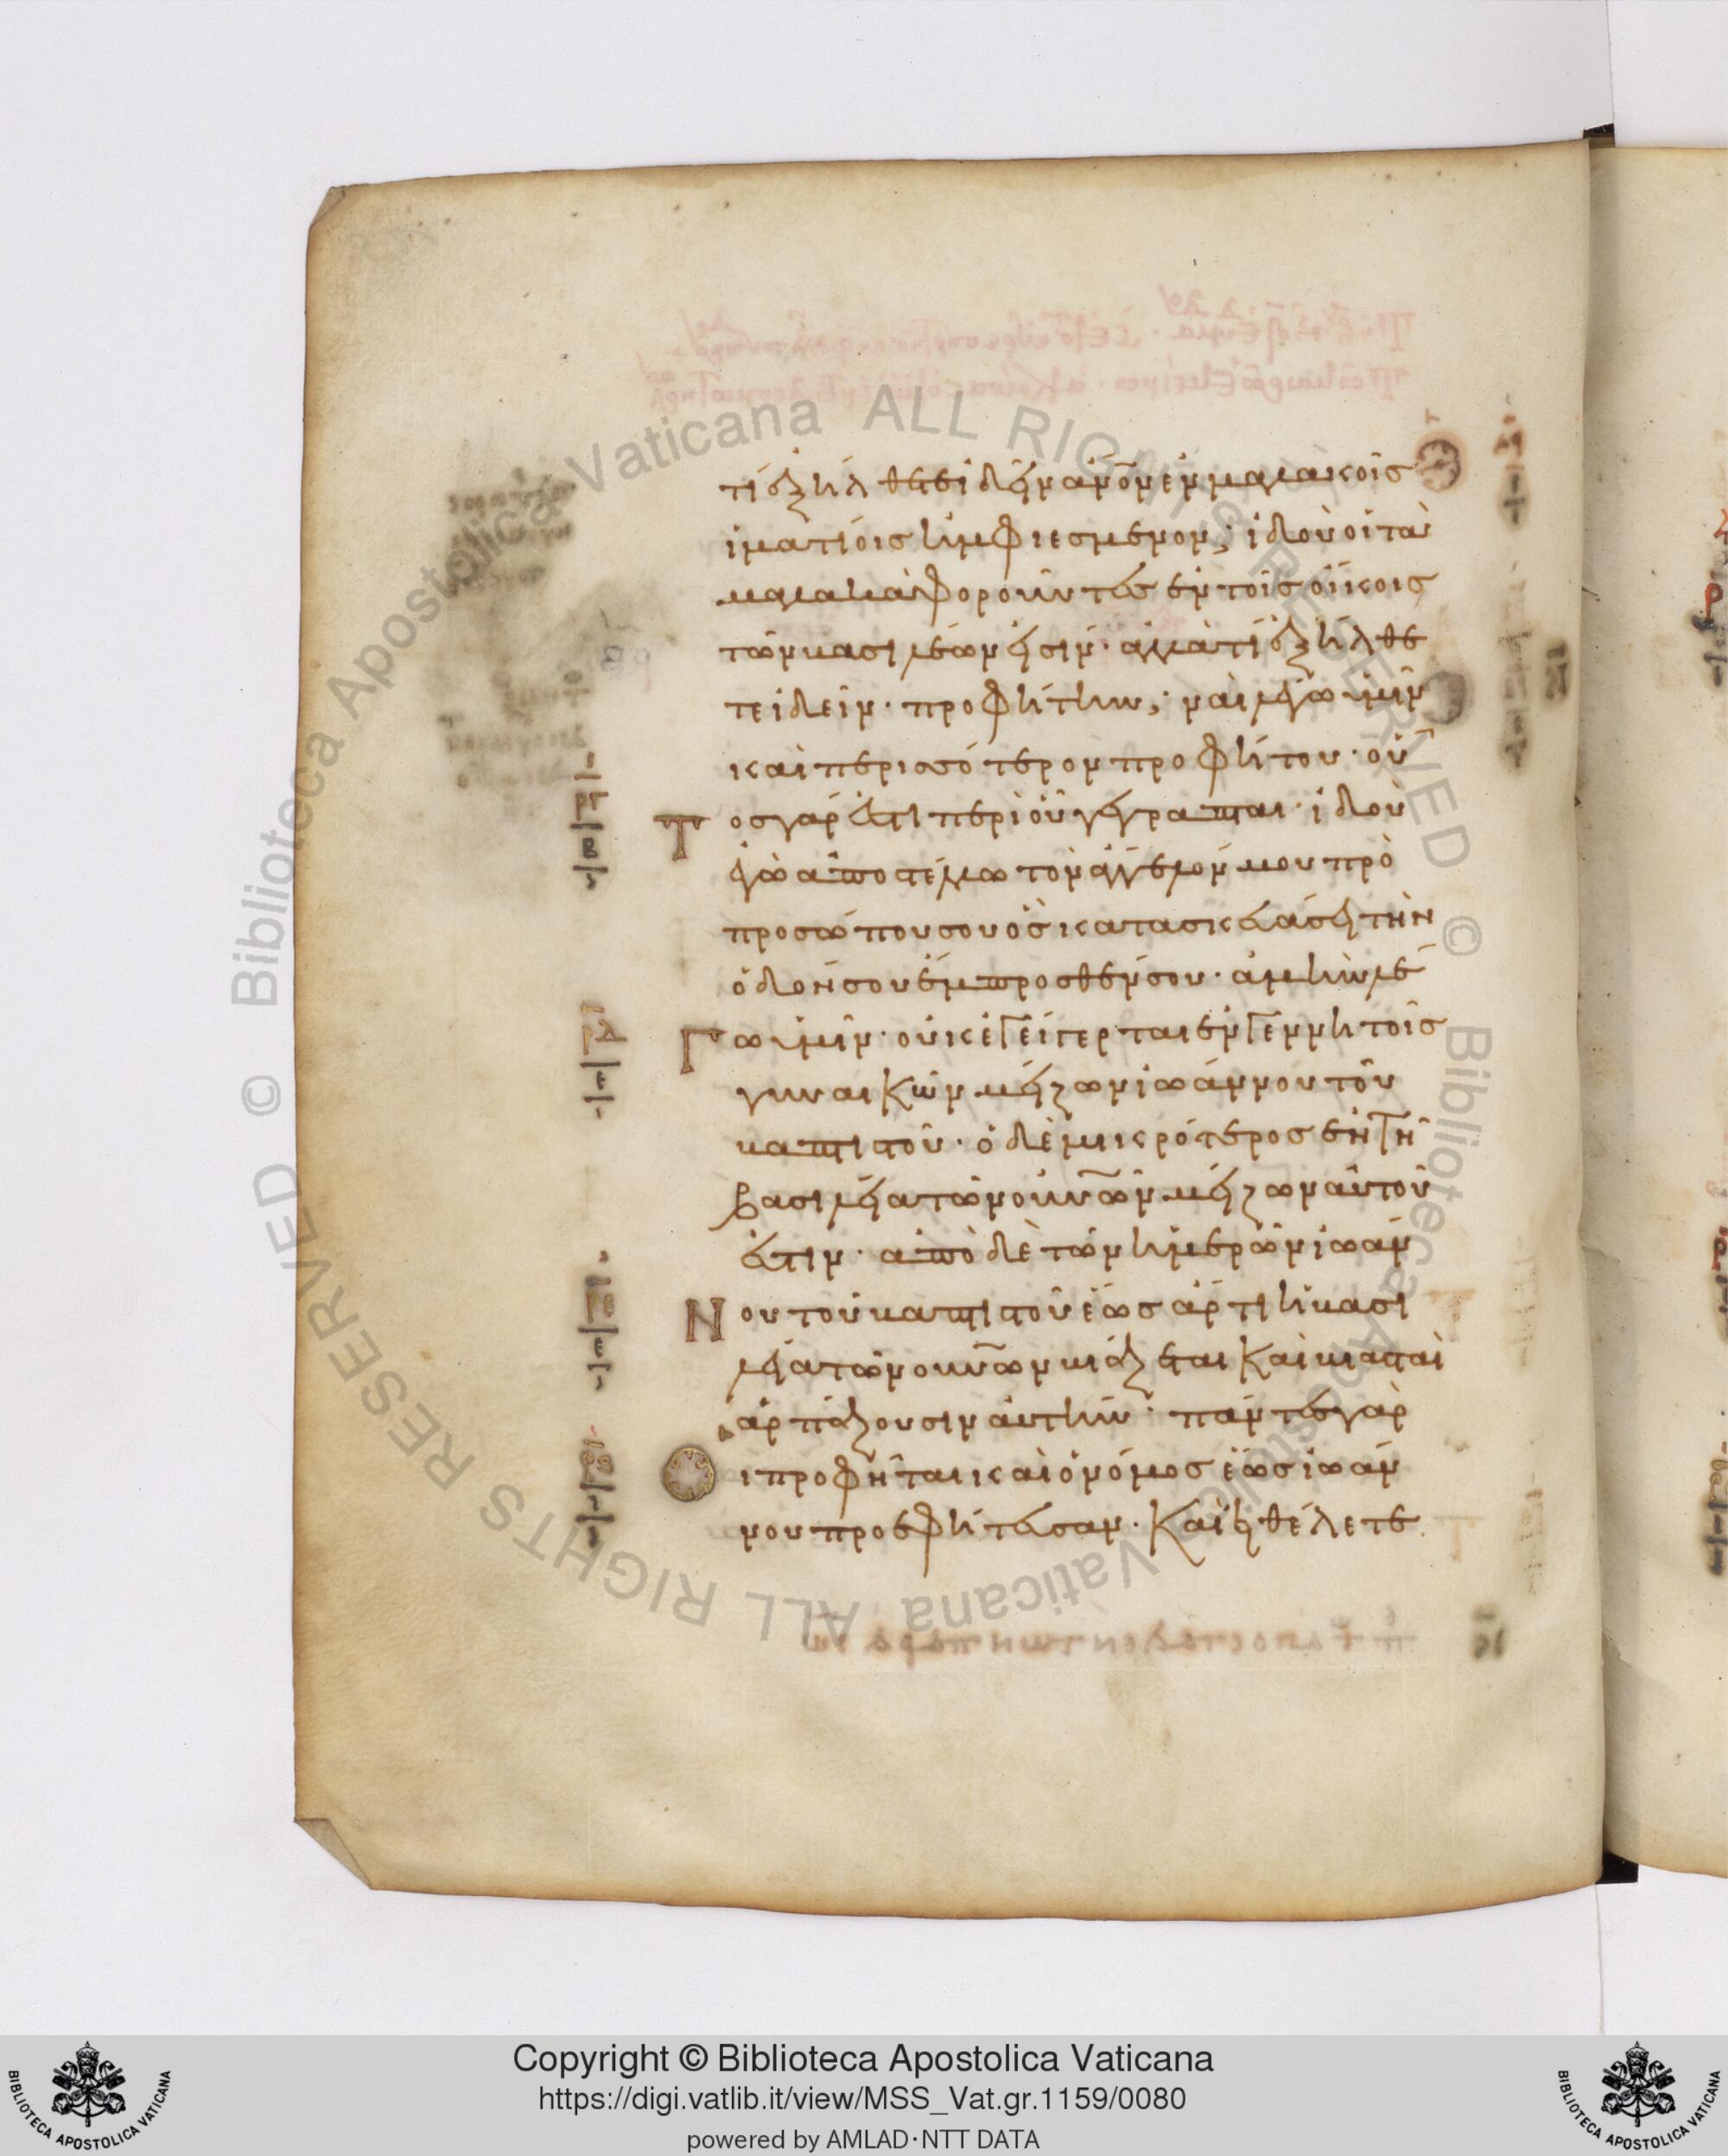 τί ἐξήλθετε ἰδεῖν ἀν̅ο̅ν ἐν μαλακοῖς
ἱματίοις ἠμφιεσμένον; ἰδοὺ οἱ τὰ
μαλακὰ φοροῦντες ἐν τοῖς οἴκοις
τῶν βασιλέων εἰσίν· ἀλλὰ τί ἐξήλθε
τε ἰδεῖν· προφήτην; ναὶ λέγω ὑμῖν
καὶ περισσότερον προφήτου· οὗ
τος γάρ ἐστι περὶ οὗ γέγραπται· ἰδοὺ
ἐγὼ ἀποστέλλω τὸν ἄγγελόν μου πρὸ
προσώπου σου ὃς κατασκευάσει τὴν
ὁδόν σου ἔμπροσθέν σου· ἀμὴν λέ
γω ὑμῖν· οὐκ ἐγείγερται ἐν γεννητοῖς
γυναικῶν μείζων ἰωάννου τοῦ
βαπτιστοῦ· ὁ δὲ μικρότερος ἐν τῇ
βασιλείᾳ τῶν οὐν̅ῶν μείζων αὐτοῦ
ἐστιν· ἀπὸ δὲ τῶν ἡμερῶν ἰωάν
νου τοῦ βαπτιστοῦ ἕως ἄρτι ἡ βασι
λεία τῶν οὐν̅ῶν βιάζεται καὶ βιασταὶ
ἁρπάζουσιν αὐτήν· πάντες γὰρ
οἱ προφῆται καὶ ὁ νόμος ἕως ἰωάν
νου προεφήτευσαν· καὶ εἰ θέλετε
Copyright © Biblioteca Apostolica Vaticana
https://digi.vatlib.it/view/MSS_Vat.gr.1159/0080
powered by AMLAD·NTT DATA